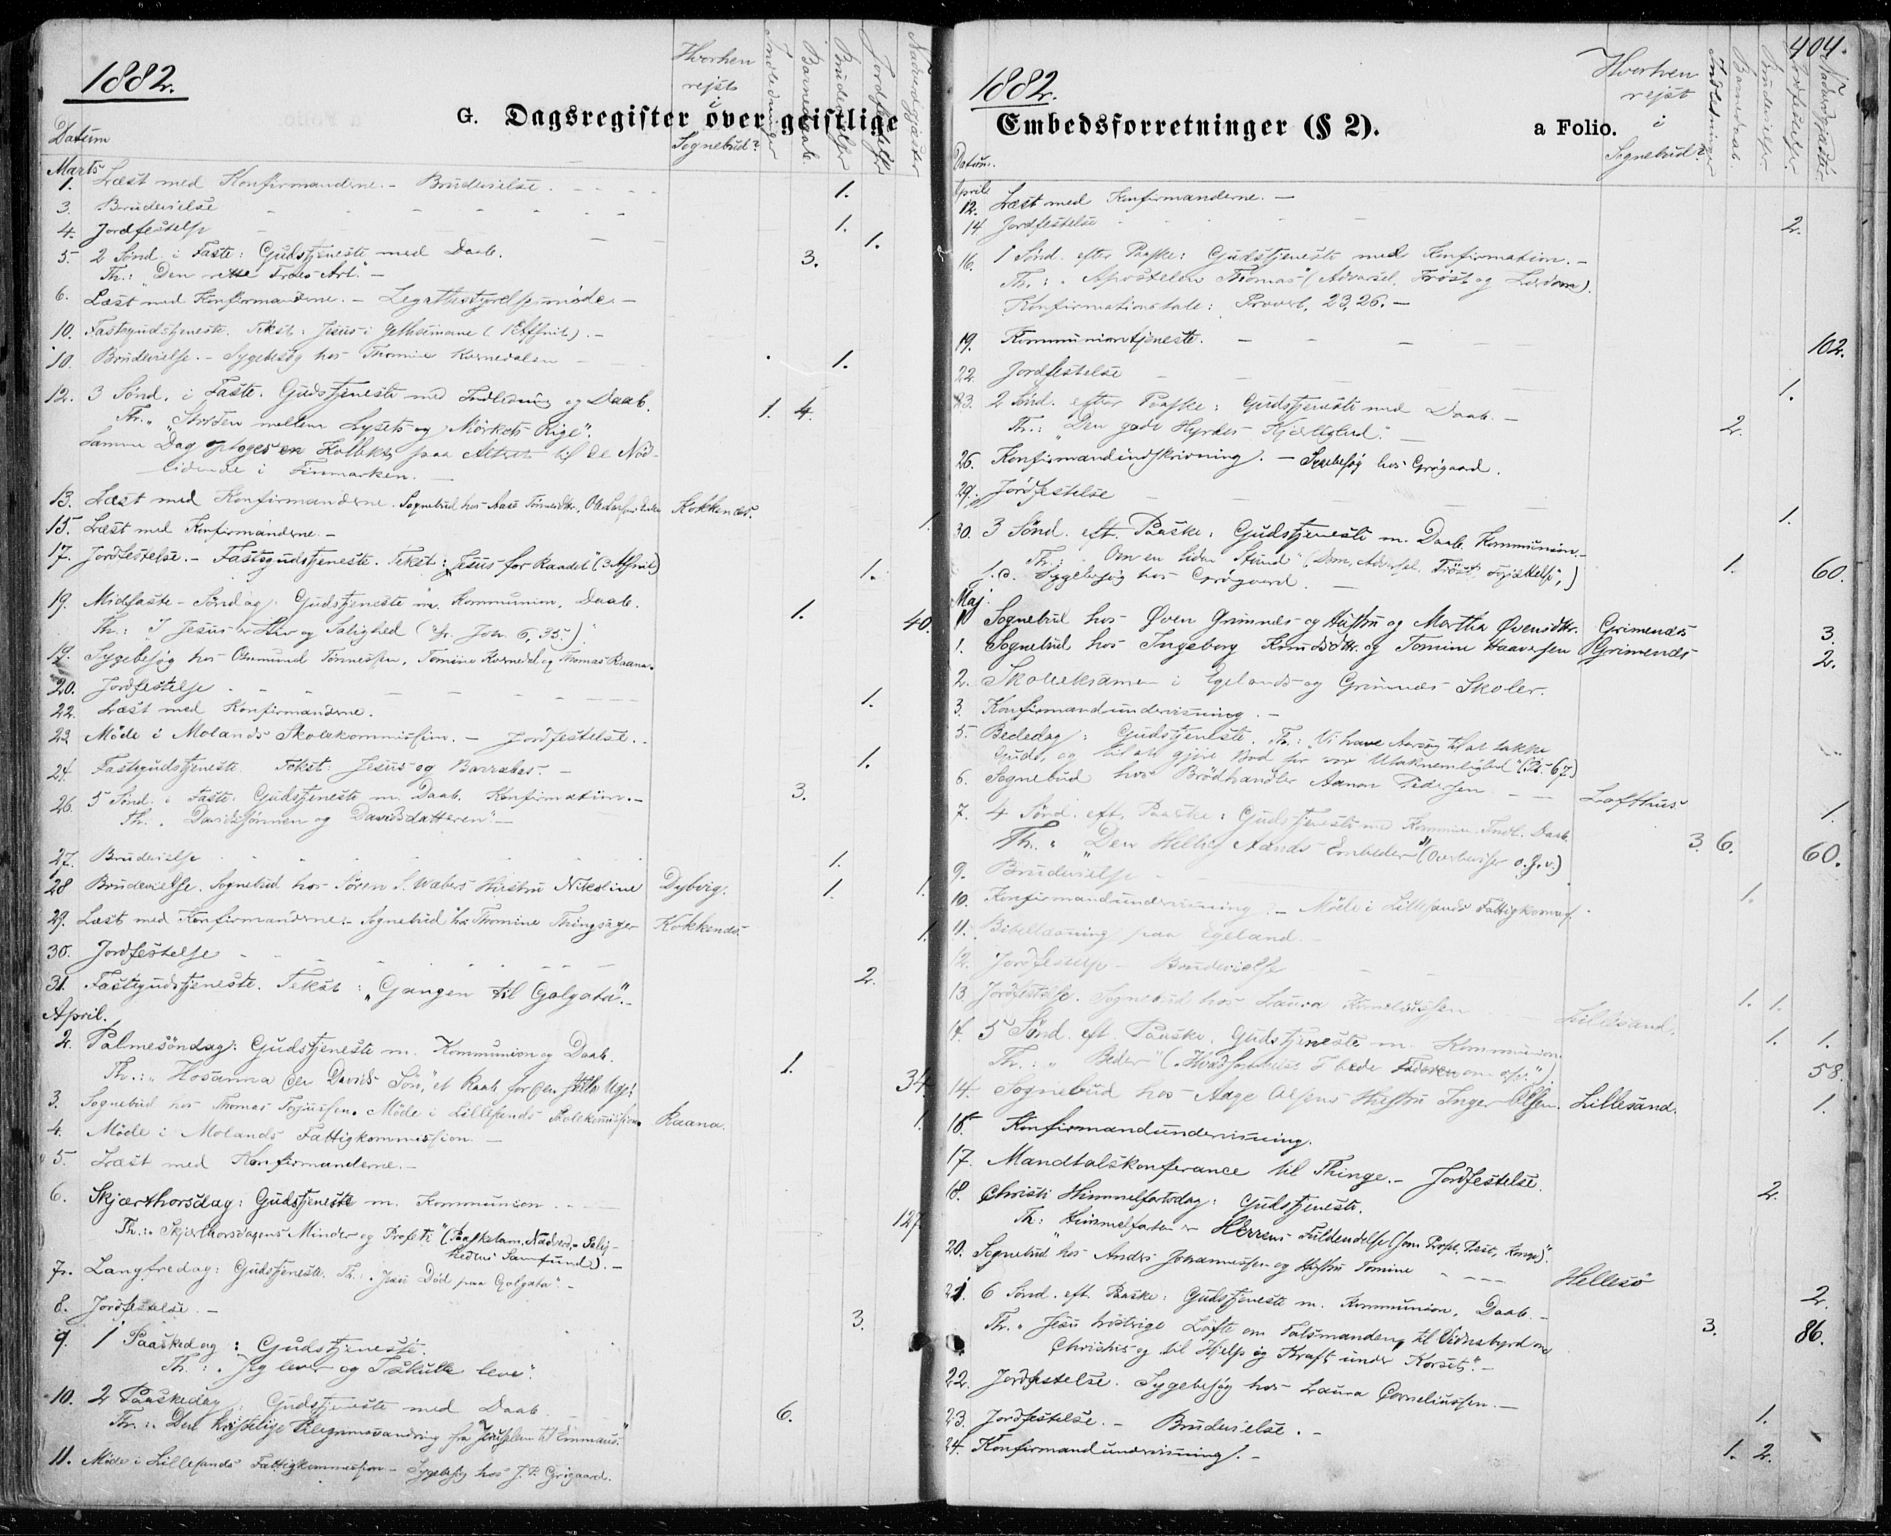 1882.
G. Dagsregister over geistlige
Datum
Hvorhen
rejst
i
Sognebud?
Indledninger
Barnedaab
Brudevielser
Jordfæstelser
Nadverdgjæster
Marts
1. Læst med Konfirmanderne. - Brudevielse. 1.
3. Brudevielse 1.
4. Jordfestelse 1.
5. 2 Sønd. i Faste: Gudstjeneste med Daab. 3.
Th.: "Den rette Troes Art." -
6. Læst med Konfirmanderne. - Legatbestyrelsesmøde. -
10. Fastegudstjeneste. Tekst: Jesus i Gethsemane (1 Afsnit). -
10. Brudevielse. - Sygebesøg hos Thomine Kornedalen 1.
12. 3 Sønd. i Faste. Gudstjeneste med Indledning og Daab. 1. 4.
Th.: "Striden mellem Lysets og Mørkets Rige".
Samme Dag optoges en Kollekt paa Alteret til de Nød-
lidende i Finmarken. -
13. Læst med Konfirmanderne. Sognebud hos Aase Tønnesdtr. Kokkenes. 1.
15. Læst med Konfirmanderne. -
17. Jordfestelse. - Fastegudstjeneste. Tekst: "Jesus for Raadet" (3 Afsnit) 1.
19. Midfaste-Søndag: Gudstjeneste m. Kommunion, Daab. 1. 40.
Th.: I Jesus er Liv og Salighed (cfr. Joh. 6, 35.).
19. Sygebesøg hos Osmund Tønnessen, Tomine Kornedal og Thomas Raana.
20. Jordfestelse 1.
22. Læst med Konfirmanderne.
23. Møde i Molands Skolekommission. - Jordfestelse. 1.
24. Fastegudstjeneste. Tekst: Jesus og Barrabas. -
26. 5 Sønd. i Faste: Gudstjeneste m. Daab. Konfirmation. - 3.
Th. "Davidssønnen og Davidsdatteren" -
27. Brudevielse 1.
28. Brudevielse. Sognebud hos Søren S. Wæbers Hustru Nikoline Dybvig. 1. 1.
29. Læst med Konfirmanderne. - Sognebud hos Thomine Thingsager Kokkenes. 1.
30. Jordfestelse 2.
31. Fastegudstjeneste. Tekst: "Gangen til Golgata". -
April.
2. Palmesøndag: Gudstjeneste m. Kommunion og Daab. 1. 34.
Th.: "Hosanna den Davids Søn", et Raab for den
3. Sognebud hos Thomas Torjussen. Møde i Lillesands Skolekommission. Raana. 1.
4. Møde i Molands Fattigkommission. -
5. Læst med Konfirmanderne. -
6. Skjærthorsdag: Gudstjeneste m. Kommunion 127.
Th.: "Skjærthorsdagens Minder og Profeti" (Paaskelam, Nadverd, Salig-
hedens Samfund). -
7. Langfredag: Gudstjeneste. Th.: "Jesu Død paa Golgata". -
8. Jordfestelse. - 3.
9. 1 Paaskedag: Gudstjeneste.
Th.: "Jeg lever og I skulle leve".
10. 2 Paaskedag: Gudstjeneste med Daab. 6.
Th.: Den kristelige Pilegrimsvandring fra Jerusalem til Emmaus."
11. Møde i Lillesands Fattigkommission - Sygebesøg hos J. P. Grøgaard.
404.
1882.
Embedsforretninger (§ 2).
a Folio.
Datum.
Hvorhen
rejst
i
Sognebud?
Indledninger
Barnedaab.
Brudevielser
Jordfæstelser
Nadverdgjæster
April
12. Læst med Konfirmanderne. -
14. Jordfestelse 2.
16. 1 Sønd. efter Paaske: Gudstjeneste med Konfirmation. -
Th.: "Apostelen Thomas" (Advarsel, Trøst og Lærdom).
Konfirmationstale: Proverb. 23,26. -
19. Kommuniontjeneste. - 102.
22. Jordfestelse 1.
23. 2 Sønd. efter Paaske: Gudstjeneste med Daab. - 2.
Th.: "Den gode Hyrdes Kjærlighed". -
26. Konfirmandindskrivning. - Sygebesøg hos Grøgaard.
29. Jordfestelse 1.
30. 3 Sønd. eft. Paaske: Gudstjeneste m. Daab. Kommunion. - 1. 60.
Th.: "Om en liden Stund" (Dom, Advarsel, Trøst,
s. d. Sygebesøg hos Grøgaard. -
Maj.
1. Sognebud hos Øven Grimnes og Hustru og Martha Øvensdtr. Grimenes 3.
1. Sognebud hos Ingeborg Knudsdtr. og Tomine Haaversen Grimenes 2.
2. Skoleeksamen i Egelands og Grimnes Skoler.
3. Konfirmandundervisning. -
5. Bededag: Gudstjeneste. Th.: "Vi have Aarsag til at takke
Gud, og til at gjøre Bod for vor Utaknemlighed" (Ps. 67)
6. Sognebud hos Brødhandler Aanon Pedersen Lofthus 1.
7. 4 Sønd. eft. Paaske: Gudstjeneste med Kommun. Indl. Daab. 3. 6. 60.
Th. "Den Hellig Aands Embeder" (Overbeviser o. s. v.)
9. Brudevielse 1.
10. Konfirmandundervisning. - Møde i Lillesands Fattigkommis.
11. Bibellæsning paa Egeland. -
12. Jordfestelse - Brudevielse 1. 1.
13. Jordfestelse. Sognebud hos Laura Korneliussen Lillesand. 1. 1.
14. 5 Sønd. eft. Paaske. Gudstjeneste m. Kommunion. 58.
Th.: "Beder" ("Hvadsomhelst I bede Faderen om osv.")
14. Sognebud hos Aage Olsens Hustru Inger Olsen. Lillesand. 1.
15. Konfirmandundervisning.
17. Mandtalskonferance til Thinge. - Jordfestelse. 2.
18. Christi Himmelfartsdag: Gudstjeneste.
Th: "Himmelfarten er Herrens Fuldendelse (som Profet, Præst, Konge)".
20. Sognebud hos Anders Johannessen og Hustru Tomine Hellesø 2.
21. 6 Sønd. eft. Paaske: Gudstjeneste m. Kommunion, Daab. - 3. 86.
Th. "Jesu trøstrige Løfte om Talsmanden, til Vidnesbyrd om
Christus og til Hjelp og Kraft under Korset". -
22. Jordfestelse. Sygebesøg hos Laura Corneliussen. - 1.
23. Jordfestelse. - Brudevielse. - 1. 2.
24. Konfirmandundervisning. -